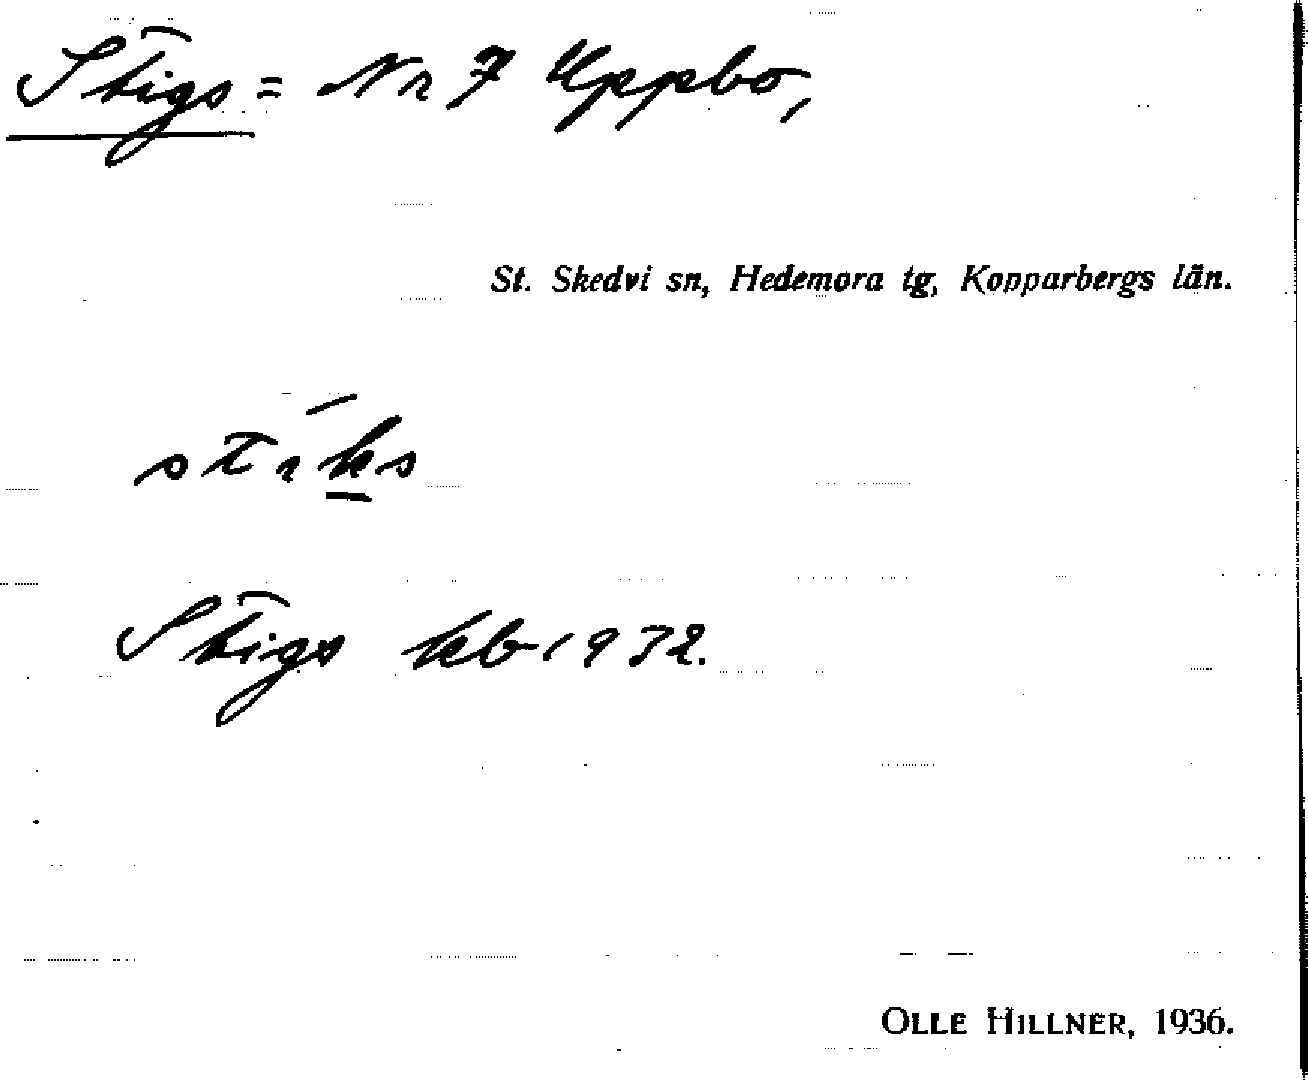 Stigs = Nr 7 Uppbo,
St. Skedvi sn, Hedemora tg, Kopparbergs län.
stiks
Stigs kb 1932.
OLLE HILLNER, 1936.